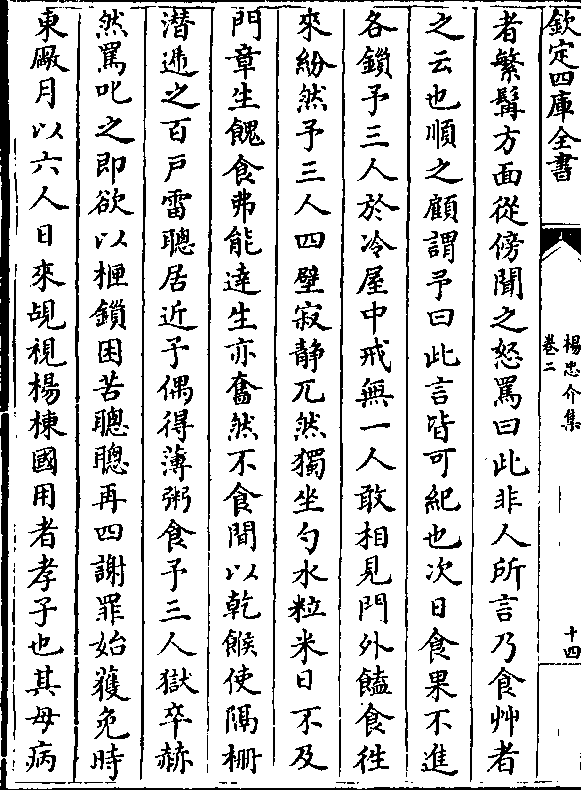 欽定四庫全書
楊忠介集
卷二
十四
者繁髯方面從傍聞之怒罵曰此非人所言乃食艸者
之云也順之顧謂予曰此言皆可紀也次日食果不進
各鎖予三人於冷屋中戒無一人敢相見門外饁食徃
來紛然予三人四壁寂静兀然獨坐勺水粒米日不及
門章生餽食弗能達生亦奮然不食間以乾餱使隔柵
潜遞之百戸雷聰居近予偶得薄粥食予三人獄卒赫
然罵叱之即欲以柙鎖困苦聰聰再四謝罪始獲免時
東厰月以六人日來覘視楊棟國用者孝子也其母病